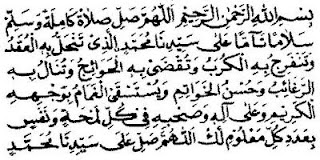 بِسْمِ اللهِ الرَّحْمٰنِ الرَّحِيْمِ اَللّٰهُمَّ صَلِّ صَلَاةً كَامِلَةً وَسَلِّمْ
سَلَامًا تَامًّا عَلَى سَيِّدِنَا مُحَمَّدٍ الَّذِيْ تَنْحَلُّ بِهِ الْعُقَدُ
وَتَنْفَرِجُ بِهِ الْكُرَبُ وَتُقْضَى بِهِ الْحَوَائِجُ وَتُنَالُ بِهِ
الرَّغَائِبُ وَحُسْنُ الْخَوَاتِمِ وَيُسْتَسْقَى الْغَمَامُ بِوَجْهِهِ
الْكَرِيْمِ وَعَلَى آلِهِ وَصَحْبِهِ فِيْ كُلِّ لَمْحَةٍ وَنَفَسٍ
بِعَدَدِ كُلِّ مَعْلُوْمٍ لَكَ اَللّٰهُمَّ صَلِّ عَلَى سَيِّدِنَا مُحَمَّدٍ